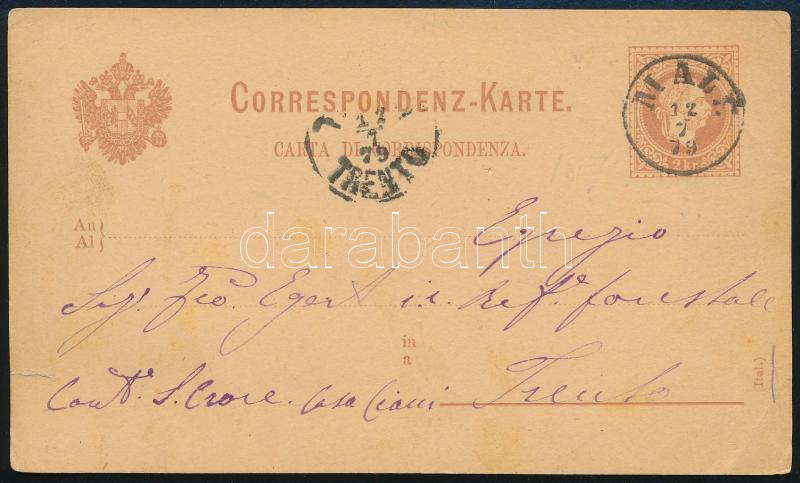 CORRESPONDENZ-KARTE.
CARTA DI CORRISPONDENZA.
MALÈ
12
7
79
2 kr.
7
79
TRENTO
An
Al
Egregio
Sig. Fco. Egert i.r. Reff.e forestale
in
a
Cont. S. Croce. Casa Ciani Trento
(Ital.)
darabanth